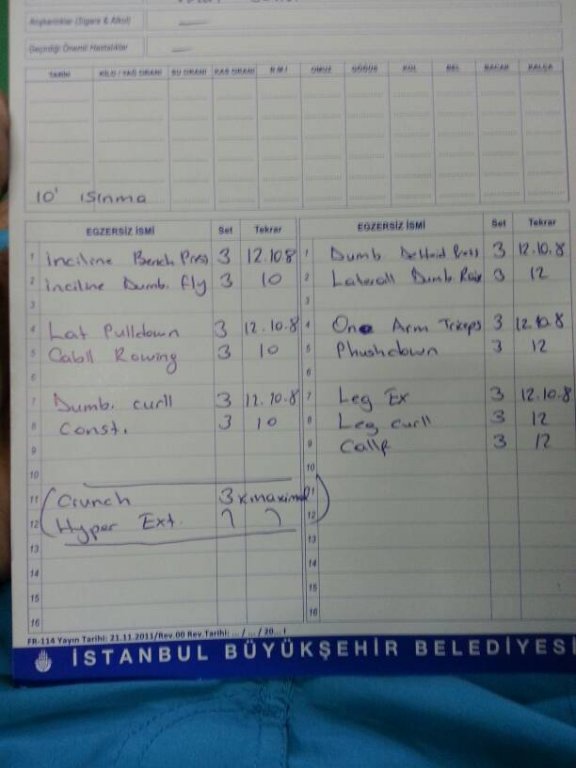 Alışkanlıklar (Sigara & Alkol)
Geçirdiği Önemli Hastalıklar
TARİH KİLO / YAĞ ORANI SU ORANI KAS ORANI B.M.I OMUZ GÖĞÜS KOL BEL BACAK KALÇA
10' ısınma
EGZERSİZ İSMİ Set Tekrar
1 Incline Bench Press 3 12.10.8
2 Incline Dumb. fly 3 10
3
4 Lat Pulldown 3 12.10.8
5 Cabll Rowing 3 10
6
7 Dumb. curll 3 12.10.8
8 Const. 3 10
9
10
11 Crunch 3 x maximal
12 Hyper Ext.
13
14
15
16
EGZERSİZ İSMİ Set Tekrar
1 Dumb Deltoid Press 3 12.10.8
2 Laterall Dumb Raise 3 12
3
4 One Arm Triceps 3 12.10.8
5 Phushdown 3 12
6
7 Leg Ex 3 12.10.8
8 Leg curll 3 12
9 Callf 3 12
10
11
12
13
14
15
16
FR-114 Yayın Tarihi: 21.11.2011/Rev.00 Rev.Tarihi: ... / ... / 20...
İSTANBUL BÜYÜKŞEHİR BELEDİYESİ